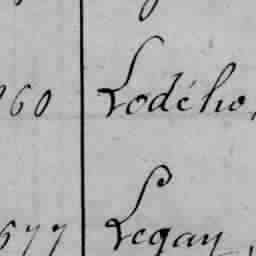 260 Lodého,
577 Legay,